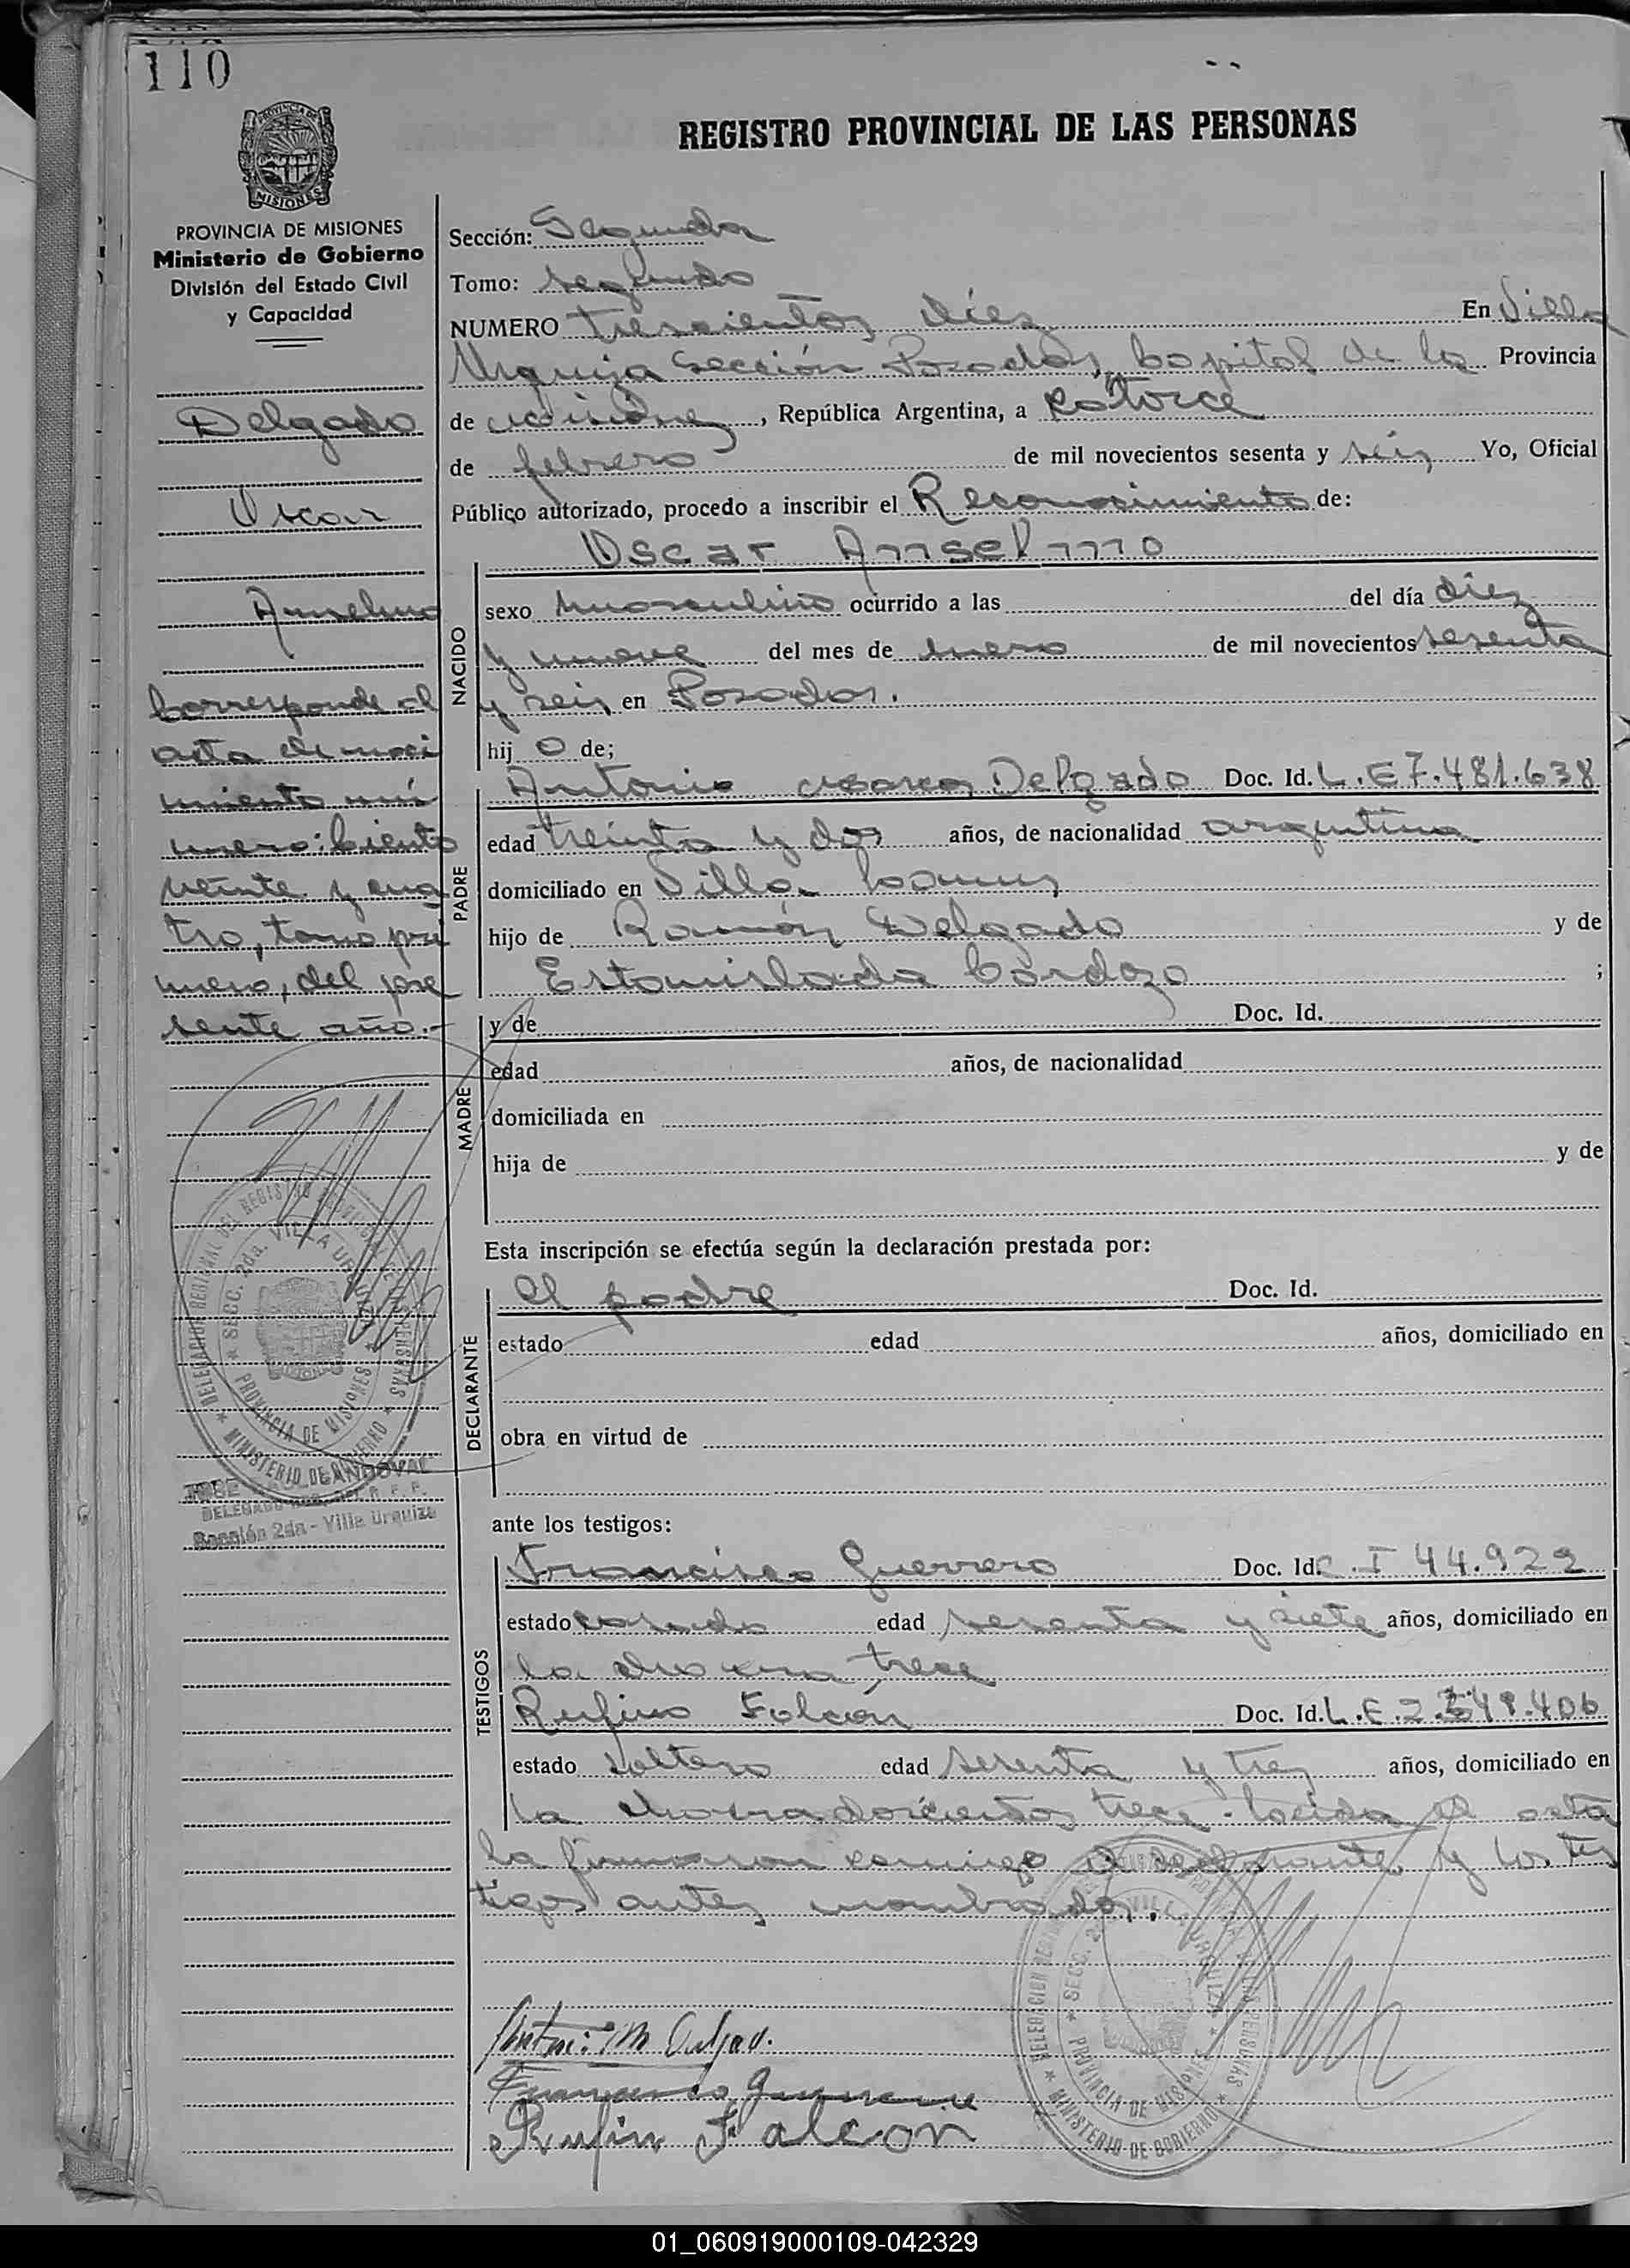 110
REGISTRO PROVINCIAL DE LAS PERSONAS
PROVINCIA DE MISIONES
Ministerio de Gobierno
División del Estado Civil
y Capacidad
Delgado
Oscar
Anselmo
Corresponde al
acta de naci
miento nú
mero: Ciento
veinte y cua
tro, tomo pri
mero, del pre
sente año.-
DELEGACION REGIONAL DEL REGISTRO PROVINCIAL DE LAS PERSONAS
* SECC. 2da. VILLA URQUIZA *
PROVINCIA DE MISIONES
* MINISTERIO DE GOBIERNO *
JOSE SANDOVAL
DELEGADO
Sección 2da - Villa Urquiza
Sección: Segunda
Tomo: segundo
NUMERO trescientos diez En Villa
Urquiza Sección Posadas, Capital de la Provincia
de Misiones, República Argentina, a catorce
de febrero de mil novecientos sesenta y seis Yo, Oficial
Público autorizado, procedo a inscribir el Reconocimiento de:
Oscar Anselmo
NACIDO
sexo masculino ocurrido a las del día diez
y nueve del mes de enero de mil novecientos sesenta
y seis en Posadas.
hij o de;
PADRE
Antonio Marcos Delgado Doc. Id. L.E 7.481.638
edad treinta y dos años, de nacionalidad argentina
domiciliado en Villa
hijo de Ramón Delgado y de
Estanislada Cardozo ;
MADRE
y de Doc. Id.
edad años, de nacionalidad
domiciliada en
hija de y de
Esta inscripción se efectúa según la declaración prestada por:
DECLARANTE
el padre Doc. Id.
estado edad años, domiciliado en
obra en virtud de
ante los testigos:
TESTIGOS
Francisco Guerrero Doc. Id. C.I 44.922
estado casado edad sesenta y siete años, domiciliado en
la chacra trece
Rufino Falcón Doc. Id. L.E.
estado soltero edad sesenta y tres años, domiciliado en
la chacra doscientos trece. Leída el acta
la firmaron conmigo el declarante y los tes
tigos antes nombrados.
Antoni M Delgad.
Francisco Guerrero
Rufin Falcon
DELEGACION REGIONAL DEL REGISTRO PROVINCIAL DE LAS PERSONAS
* SECC. 2da. VILLA URQUIZA *
PROVINCIA DE MISIONES
* MINISTERIO DE GOBIERNO *
01_060919000109-042329